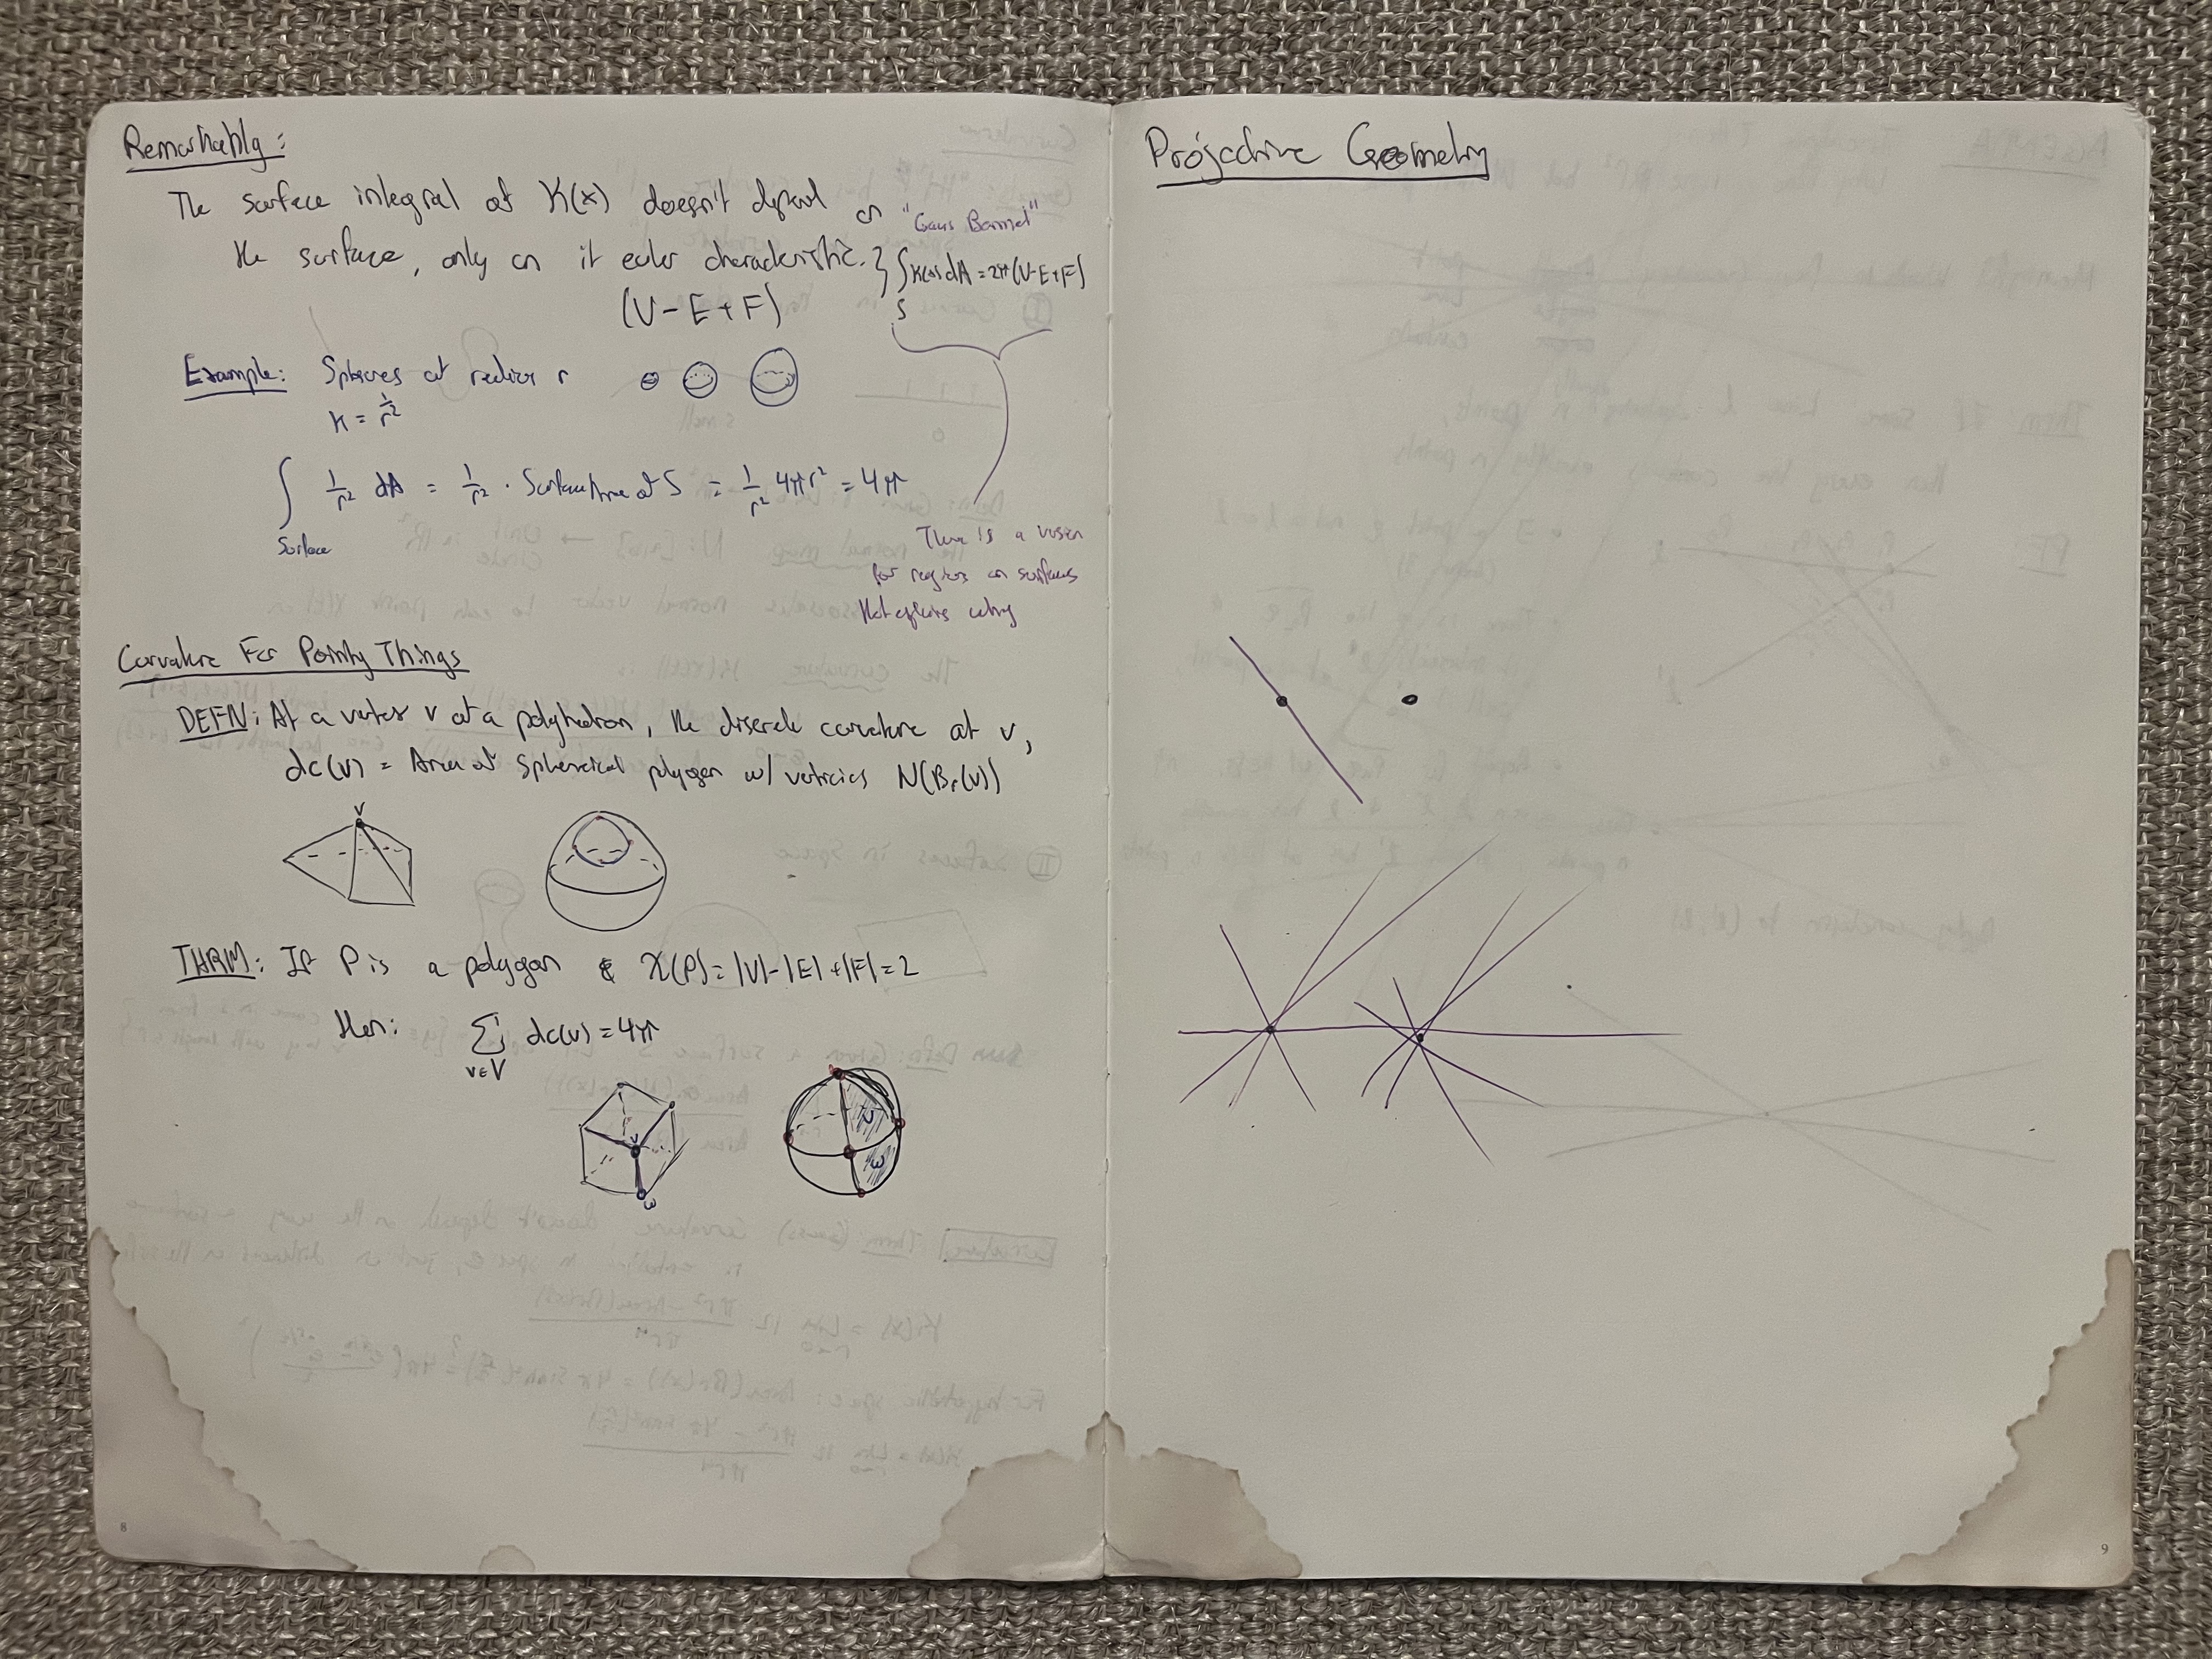 Remarkably:
The surface integral of K(x) doesn't depend on
the surface, only on it euler characteristic.
(V - E + F)
"Gauss Bonnet"
∫_S K(x) dA = 2π(V-E+F)
Example: Spheres of radius r
K = 1/r²
∫_Surface 1/r² dA = 1/r² · Surface Area of S = 1/r² 4πr² = 4π
There is a version
for regions on surfaces
that explains why
Curvature For Pointy Things
DEFN: At a vertex v of a polyhedron, the discrete curvature at v,
dc(v) = Area of spherical polygon w/ verticies N(Br(v))
v
THRM: If P is a polygon & χ(P) = |V|-|E|+|F| = 2
then:
Σ_{v∈V} dc(v) = 4π
v
w
v
w
8
Projective Geometry
9